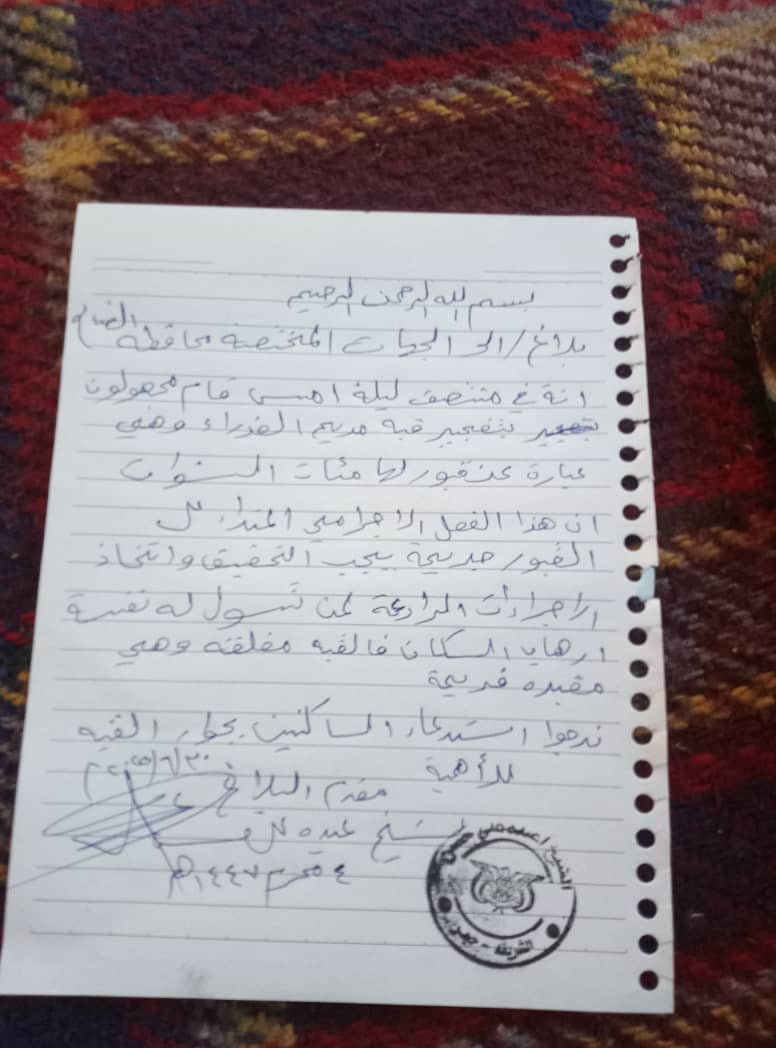 بسم الله الرحمن الرحيم
بلاغ / الى الجهات المختصة محافظة الضالع
انة في منتصف ليلة امس قام مجهولون
بتفجير قبه مريم العذراء وهي
عبارة عن قبور لها مئات السنوات
ان هذا الفعل الاجرامي
القبور جريمة يجب التحقيق واتخاذ
الاجراءات الرادعة لمن تسول له نفسة
ارهاب السكان فالقبه مغلقته وهي
مقبره قديمة
نرجوا استدعاء الساكنين بجوار القبه
للأهمية
٢٠٢٥/٦/٣٠م
مقدم البلاغ
الشيخ عبده علي
٤ محرم ١٤٤٧هـ
الشيخ / عبده علي
الشريفة -